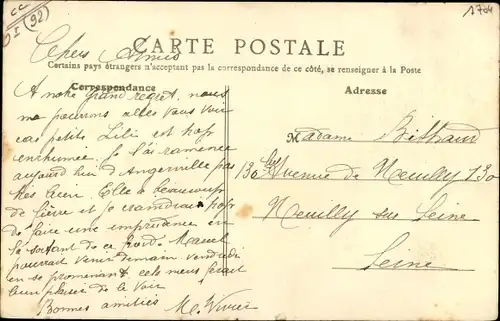 CC
I (92)
1704
Chers Amis
CARTE POSTALE
Certains pays étrangers n'acceptent pas la correspondance de ce côté, se renseigner à la Poste
Correspondance
Adresse
A notre grand regret, nous
ne pourrons aller vous voir
car petite Lili est trop
enrhumée. Je l'ai ramenée
aujourd'hui d'Angerville pas
très bien. Elle a beaucoup
de fièvre et je craindrais trop
de faire une imprudence en
la sortant de ce froid. Marcel
pourrait venir demain vendredi
en se promenant cela nous ferait
bien plaisir de le voir
Bonnes amitiés M. Vivier
Madame
130 bis Avenue de Neuilly 130
Neuilly sur Seine
Seine